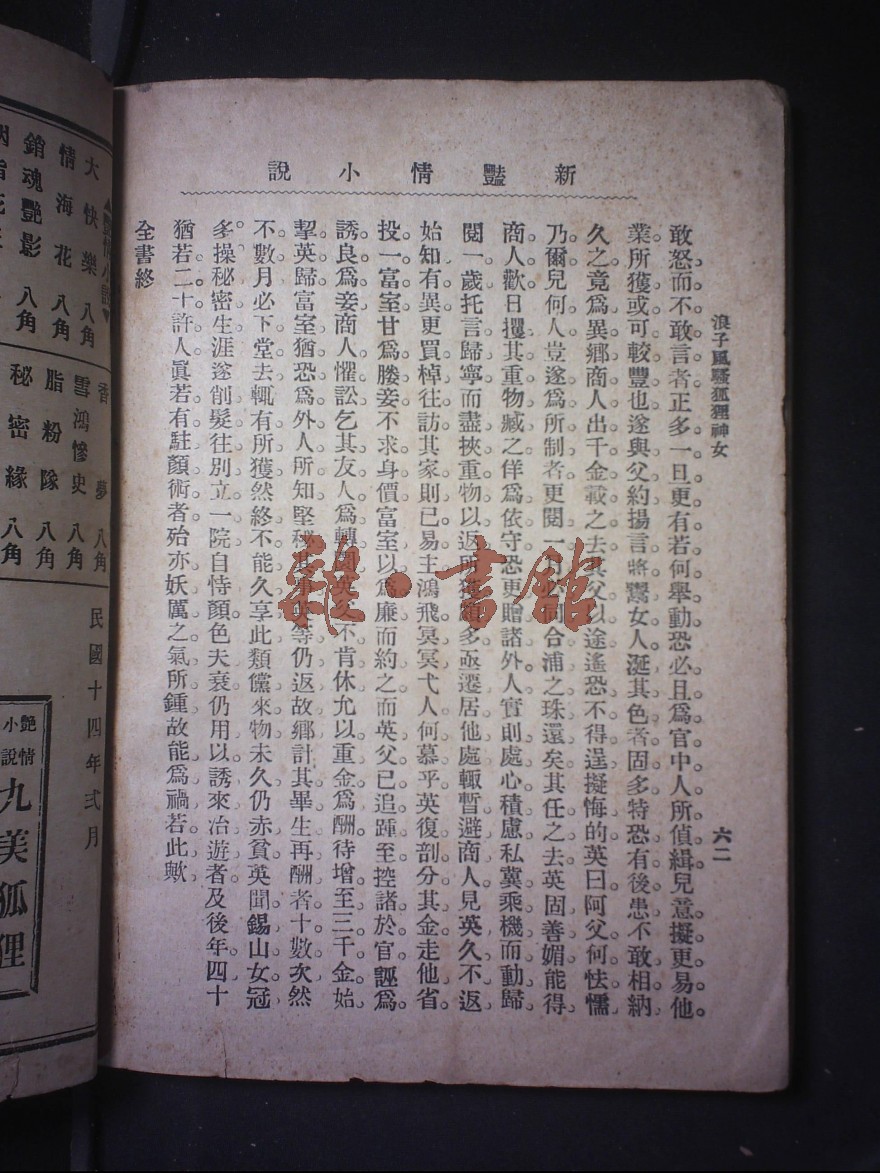 新豔情小說
浪子風騷狐狸神女
六二
敢怒而不敢言者正多一旦更有若何舉動恐必且爲官中人所偵緝兒意擬更易他。
業所獲或可較豐也遂與父約揚言將鬻女人涎其色者固多特恐有後患不敢相納。
久之竟爲異鄉商人出千金載之去其父以途遙恐不得逞擬悔的英曰阿父何怯懦
乃爾兒何人豈遂爲所制者更閱一月必同合浦之珠還矣其任之去英固善媚能得
商人歡日攫其重物臧之佯爲依守恐更贈諸外人實則處心積慮私冀乘機而動歸
閱一歲托言歸寧而盡挾重物以返所獲頗多亟遷居他處輒暫避商人見英久不返
始知有異更買棹往訪其家則已易主鴻飛冥冥弋人何慕平英復剖分其金走他省
投一富室甘爲媵妾不求身價富室以爲廉而約之而英父已追踵至控諸於官誣爲
誘良爲妾商人懼訟乞其友人爲轉圜英父不肯休允以重金爲酬待增至三千金始
挈英歸富室猶恐爲外人所知堅秘其事英等仍返故鄉計其畢生再酬者十數次然
不數月必下堂去輒有所獲然終不能久享此類儻來物未久仍赤貧英聞錫山女冠
多操秘密生涯遂削髮往別立一院自恃顏色夫衰仍用以誘來冶遊者及後年四十
猶若二十許人眞若有駐顏術者殆亦妖厲之氣所鍾故能爲禍若此歟
全書終
雜·書館
▲豔情小說▼
大快樂 八角
情海花 八角
銷魂艷影 八角
香夢 八角
雪鴻慘史 八角
脂粉隊 八角
秘密緣 八角
民國十四年弍月
艷情小說
九美狐狸